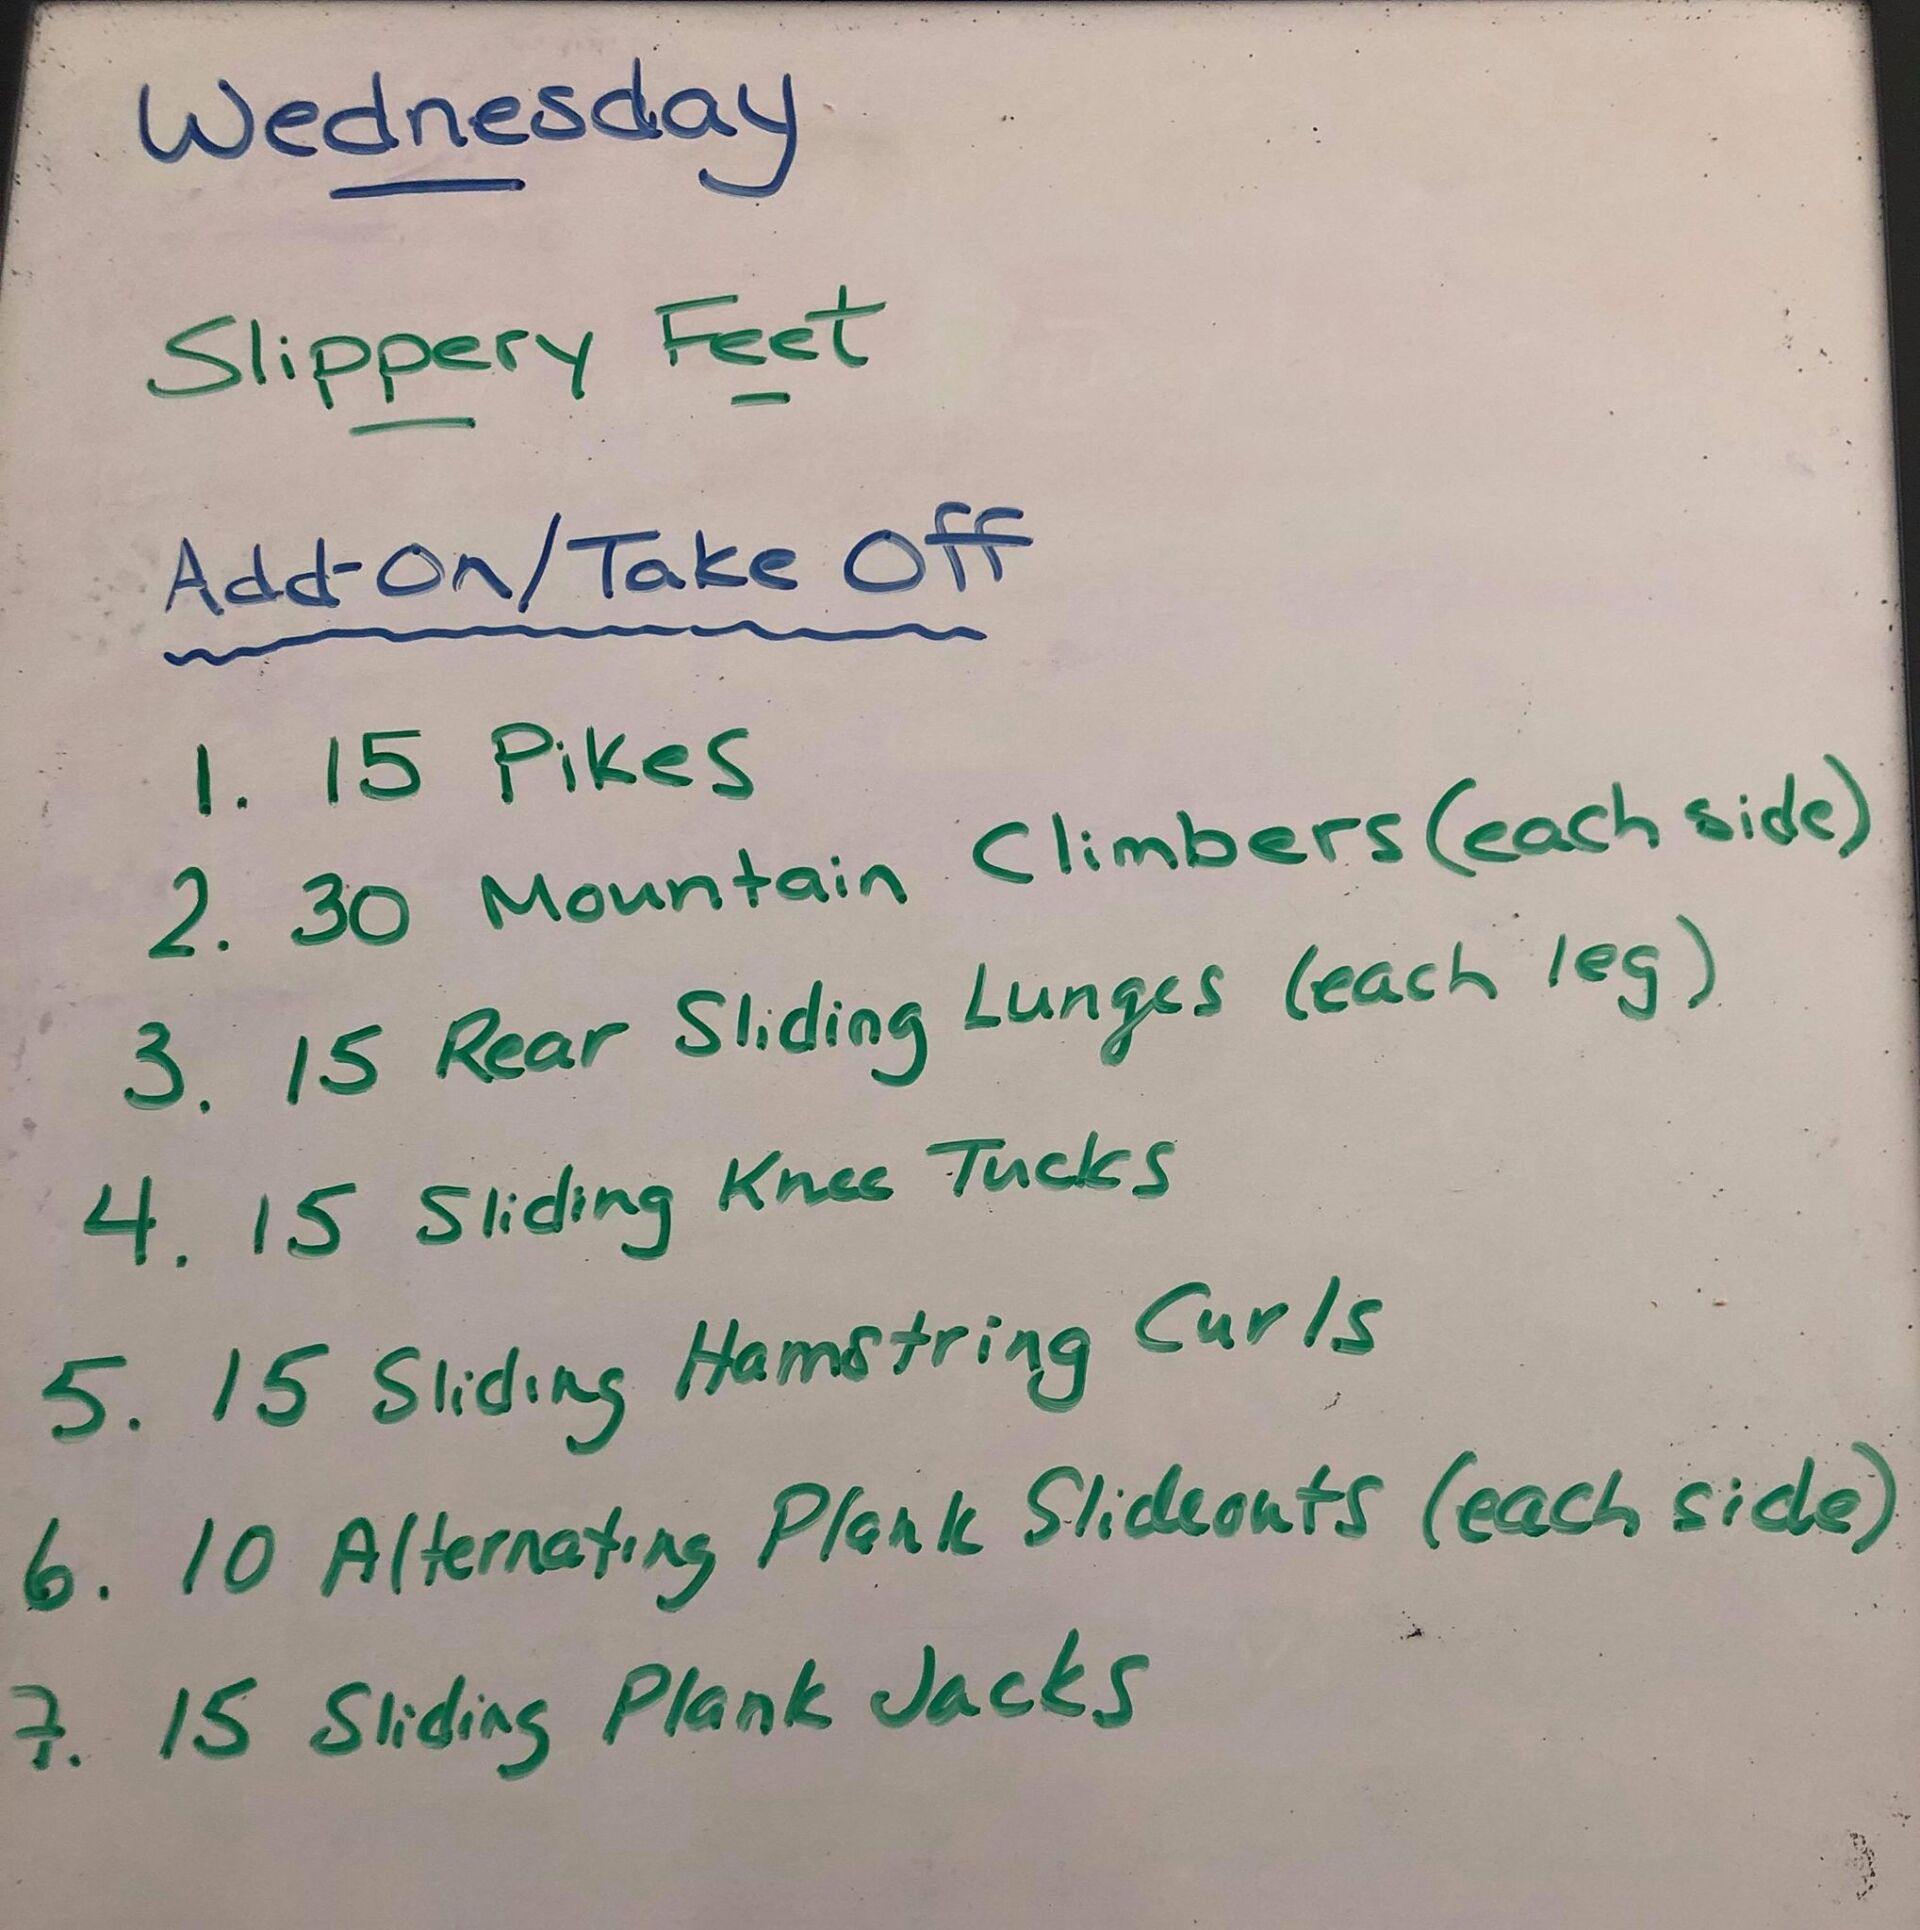 Wednesday
Slippery Feet
Add-On/Take Off
1. 15 Pikes
2. 30 Mountain Climbers (each side)
3. 15 Rear Sliding Lunges (each leg)
4. 15 Sliding Knee Tucks
5. 15 Sliding Hamstring Curls
6. 10 Alternating Plank Slideouts (each side)
7. 15 Sliding Plank Jacks